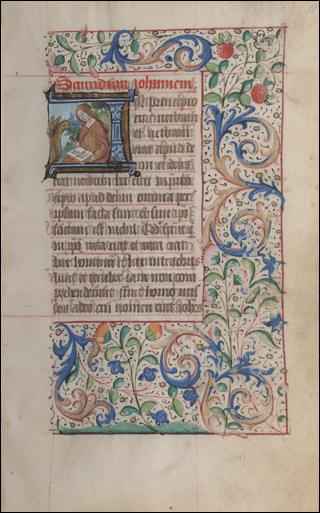 Secundum iohannem
In principio
erat verbum
et verbum
erat apud de
um et deus
erat verbum hoc erat in prin
cipio apud deum omnia per
ipsum facta sunt et sine ipo
factum est nichil Quod factum est
in ipo vita erat et vita erat
lux hominum et lux in tenebris
lucet et tenebre eam non com
prehenderunt fuit homo mis
sus a deo cui nomen erat iohes